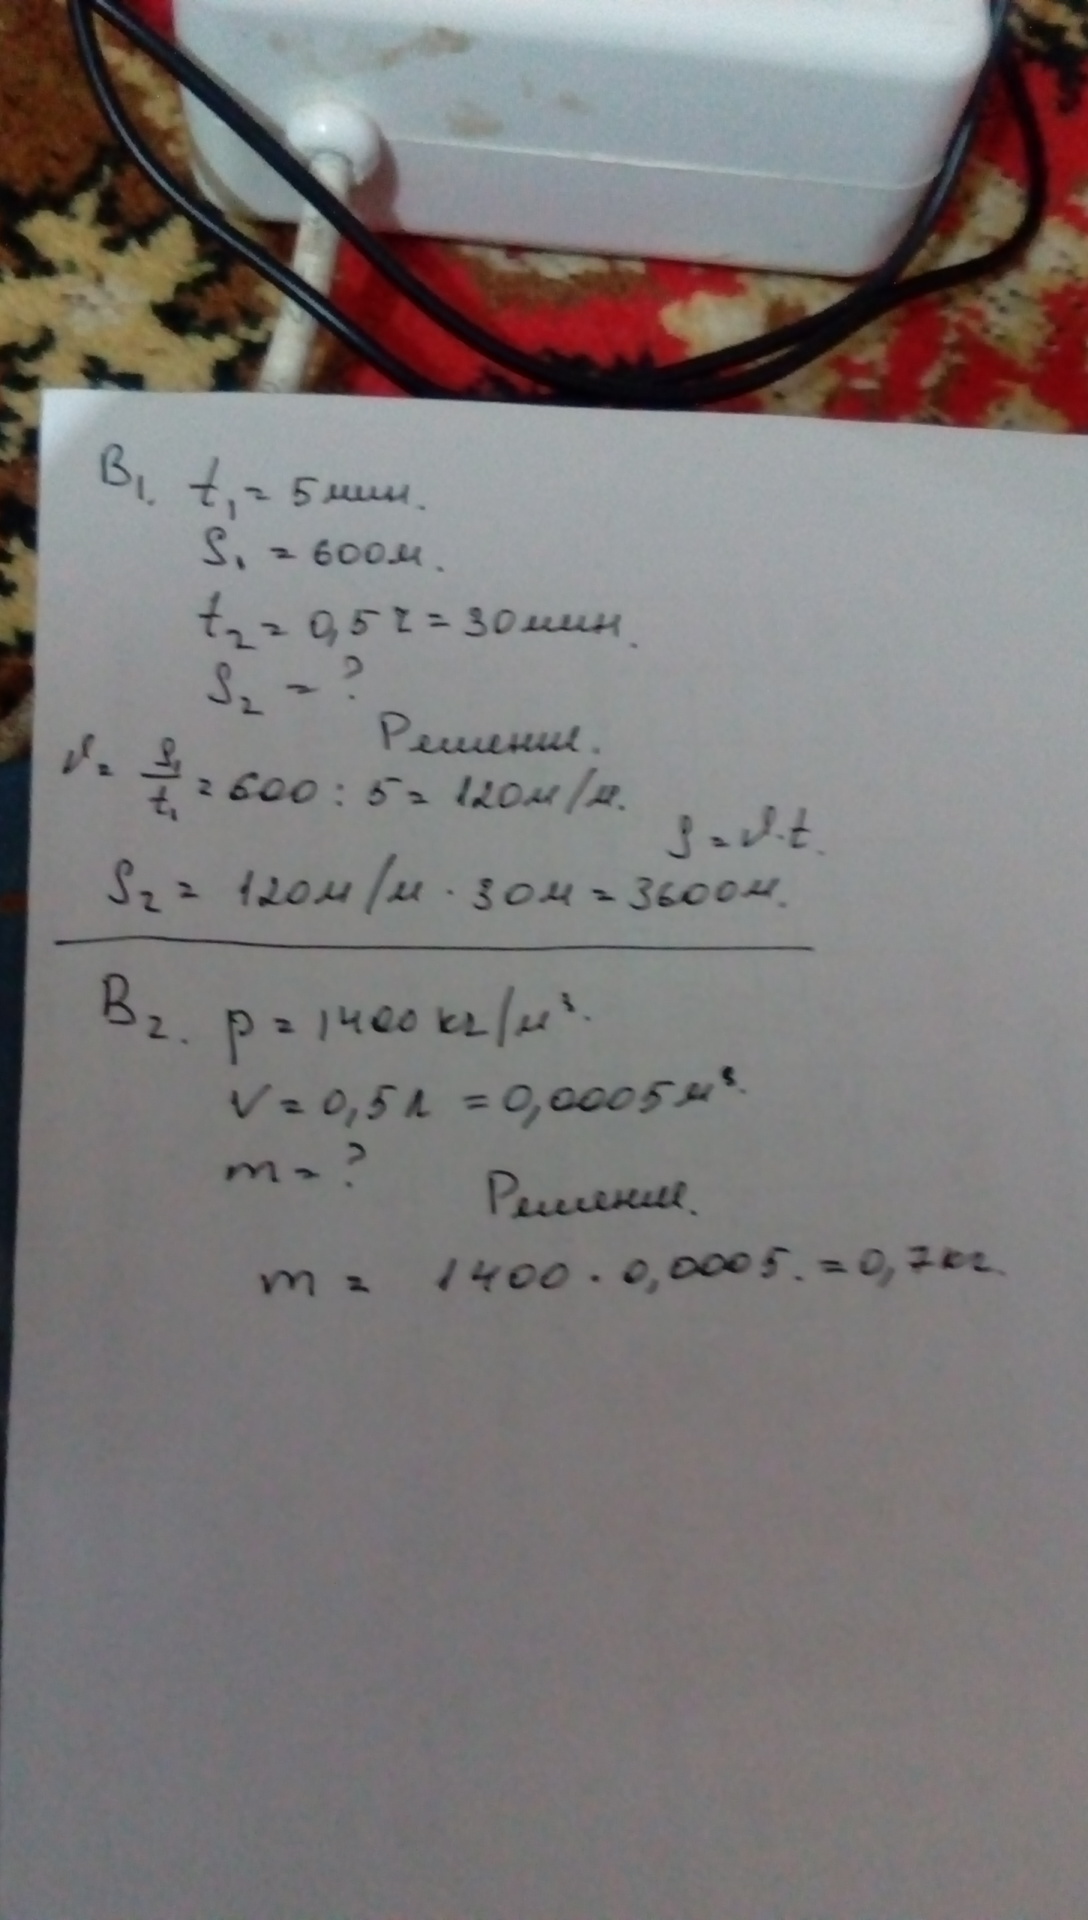 В1. t₁ = 5 мин.
S₁ = 600м.
t₂ = 0,5 ч = 30 мин.
S₂ = ?
Решение.
v = S₁/t₁ = 600 : 5 = 120м/м.
S = v·t.
S₂ = 120м/м · 30м = 3600м.
В2. p = 1400 кг/м³.
V = 0,5 л = 0,0005 м³.
m = ?
Решение.
m = 1400 · 0,0005. = 0,7 кг.